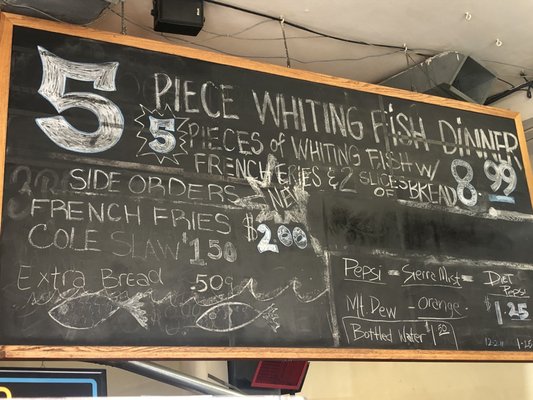 5 PIECE WHITING FISH DINNER
5 PIECES of WHITING FISH W/
FRENCH FRIES & 2 SLICES OF BREAD 8.99
SIDE ORDERS
FRENCH FRIES $2.00
COLE SLAW $1.50
Extra Bread .50¢
Pepsi - Sierra Mist - Diet Pepsi
Mt Dew - orange $1.25
Bottled Water $1.